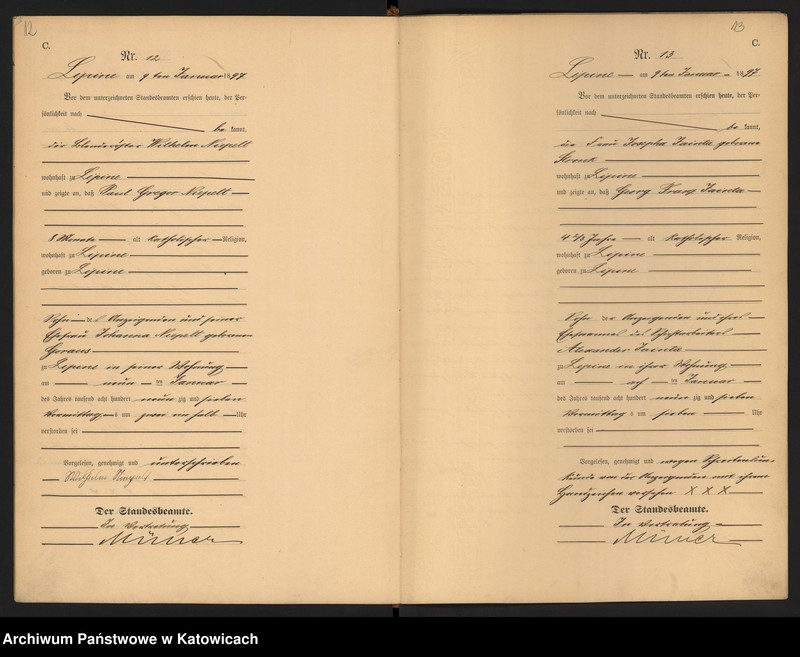 12
C.
Nr. 12
Lipine am 9ten Januar 1897
Vor dem unterzeichneten Standesbeamten erschien heute, der Per-
sönlichkeit nach
be kannt,
der Wilhelm
wohnhaft zu Lipine
und zeigte an, daß Paul Gregor
8 Monate alt katholischer Religion,
wohnhaft zu Lipine
geboren zu Lipine
Sohn des Anzeigenden und seiner
Ehefrau Johanna geborenen
zu Lipine in seiner Wohnung
am neun ten Januar
des Jahres tausend acht hundert neun zig und sieben
Vormittag s um zwei ein halb Uhr
verstorben sei
Vorgelesen, genehmigt und unterschrieben
Wilhelm
Der Standesbeamte.
In Vertretung
13
C.
Nr. 13
Lipine am 9ten Januar 1897
Vor dem unterzeichneten Standesbeamten erschien heute, der Per-
sönlichkeit nach
be kannt,
die Frau Josepha geborene
wohnhaft zu Lipine
und zeigte an, daß Georg Franz
alt katholischer Religion,
wohnhaft zu Lipine
geboren zu Lipine
Sohn der Anzeigenden und ihres
Ehemannes des
Alexander
zu Lipine in ihrer Wohnung
am ach ten Januar
des Jahres tausend acht hundert neun zig und sieben
Vormittag s um sieben Uhr
verstorben sei
Vorgelesen, genehmigt und wegen Schreibensun-
kunde von der Anzeigenden mit ihrem
Handzeichen versehen X X X
Der Standesbeamte.
In Vertretung
Archiwum Państwowe w Katowicach